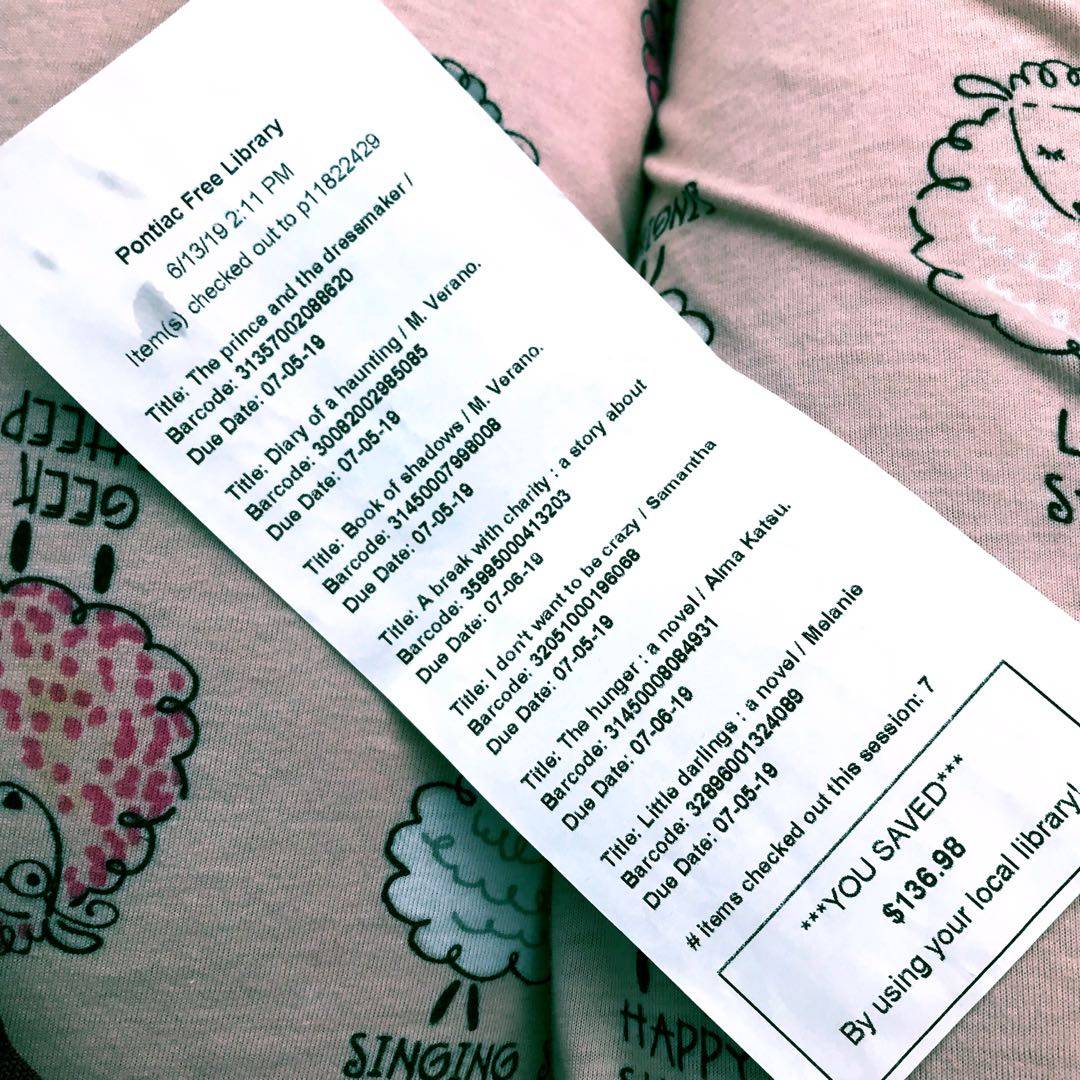 Pontiac Free Library
6/13/19 2:11 PM
Item(s) checked out to p11822429
Title: The prince and the dressmaker /
Barcode: 31357002088620
Due Date: 07-05-19
Title: Diary of a haunting / M. Verano.
Barcode: 30082002985085
Due Date: 07-05-19
Title: Book of shadows / M. Verano.
Barcode: 31450007998008
Due Date: 07-05-19
Title: A break with charity : a story about
Barcode: 35995000413203
Due Date: 07-06-19
Title: I don't want to be crazy / Samantha
Barcode: 32051000196068
Due Date: 07-05-19
Title: The hunger : a novel / Alma Katsu.
Barcode: 31450008084931
Due Date: 07-06-19
Title: Little darlings : a novel / Melanie
Barcode: 32896001324089
Due Date: 07-05-19
# items checked out this session: 7
***YOU SAVED***
$136.98
By using your local library!
GEEK
SINGING
HAPPY